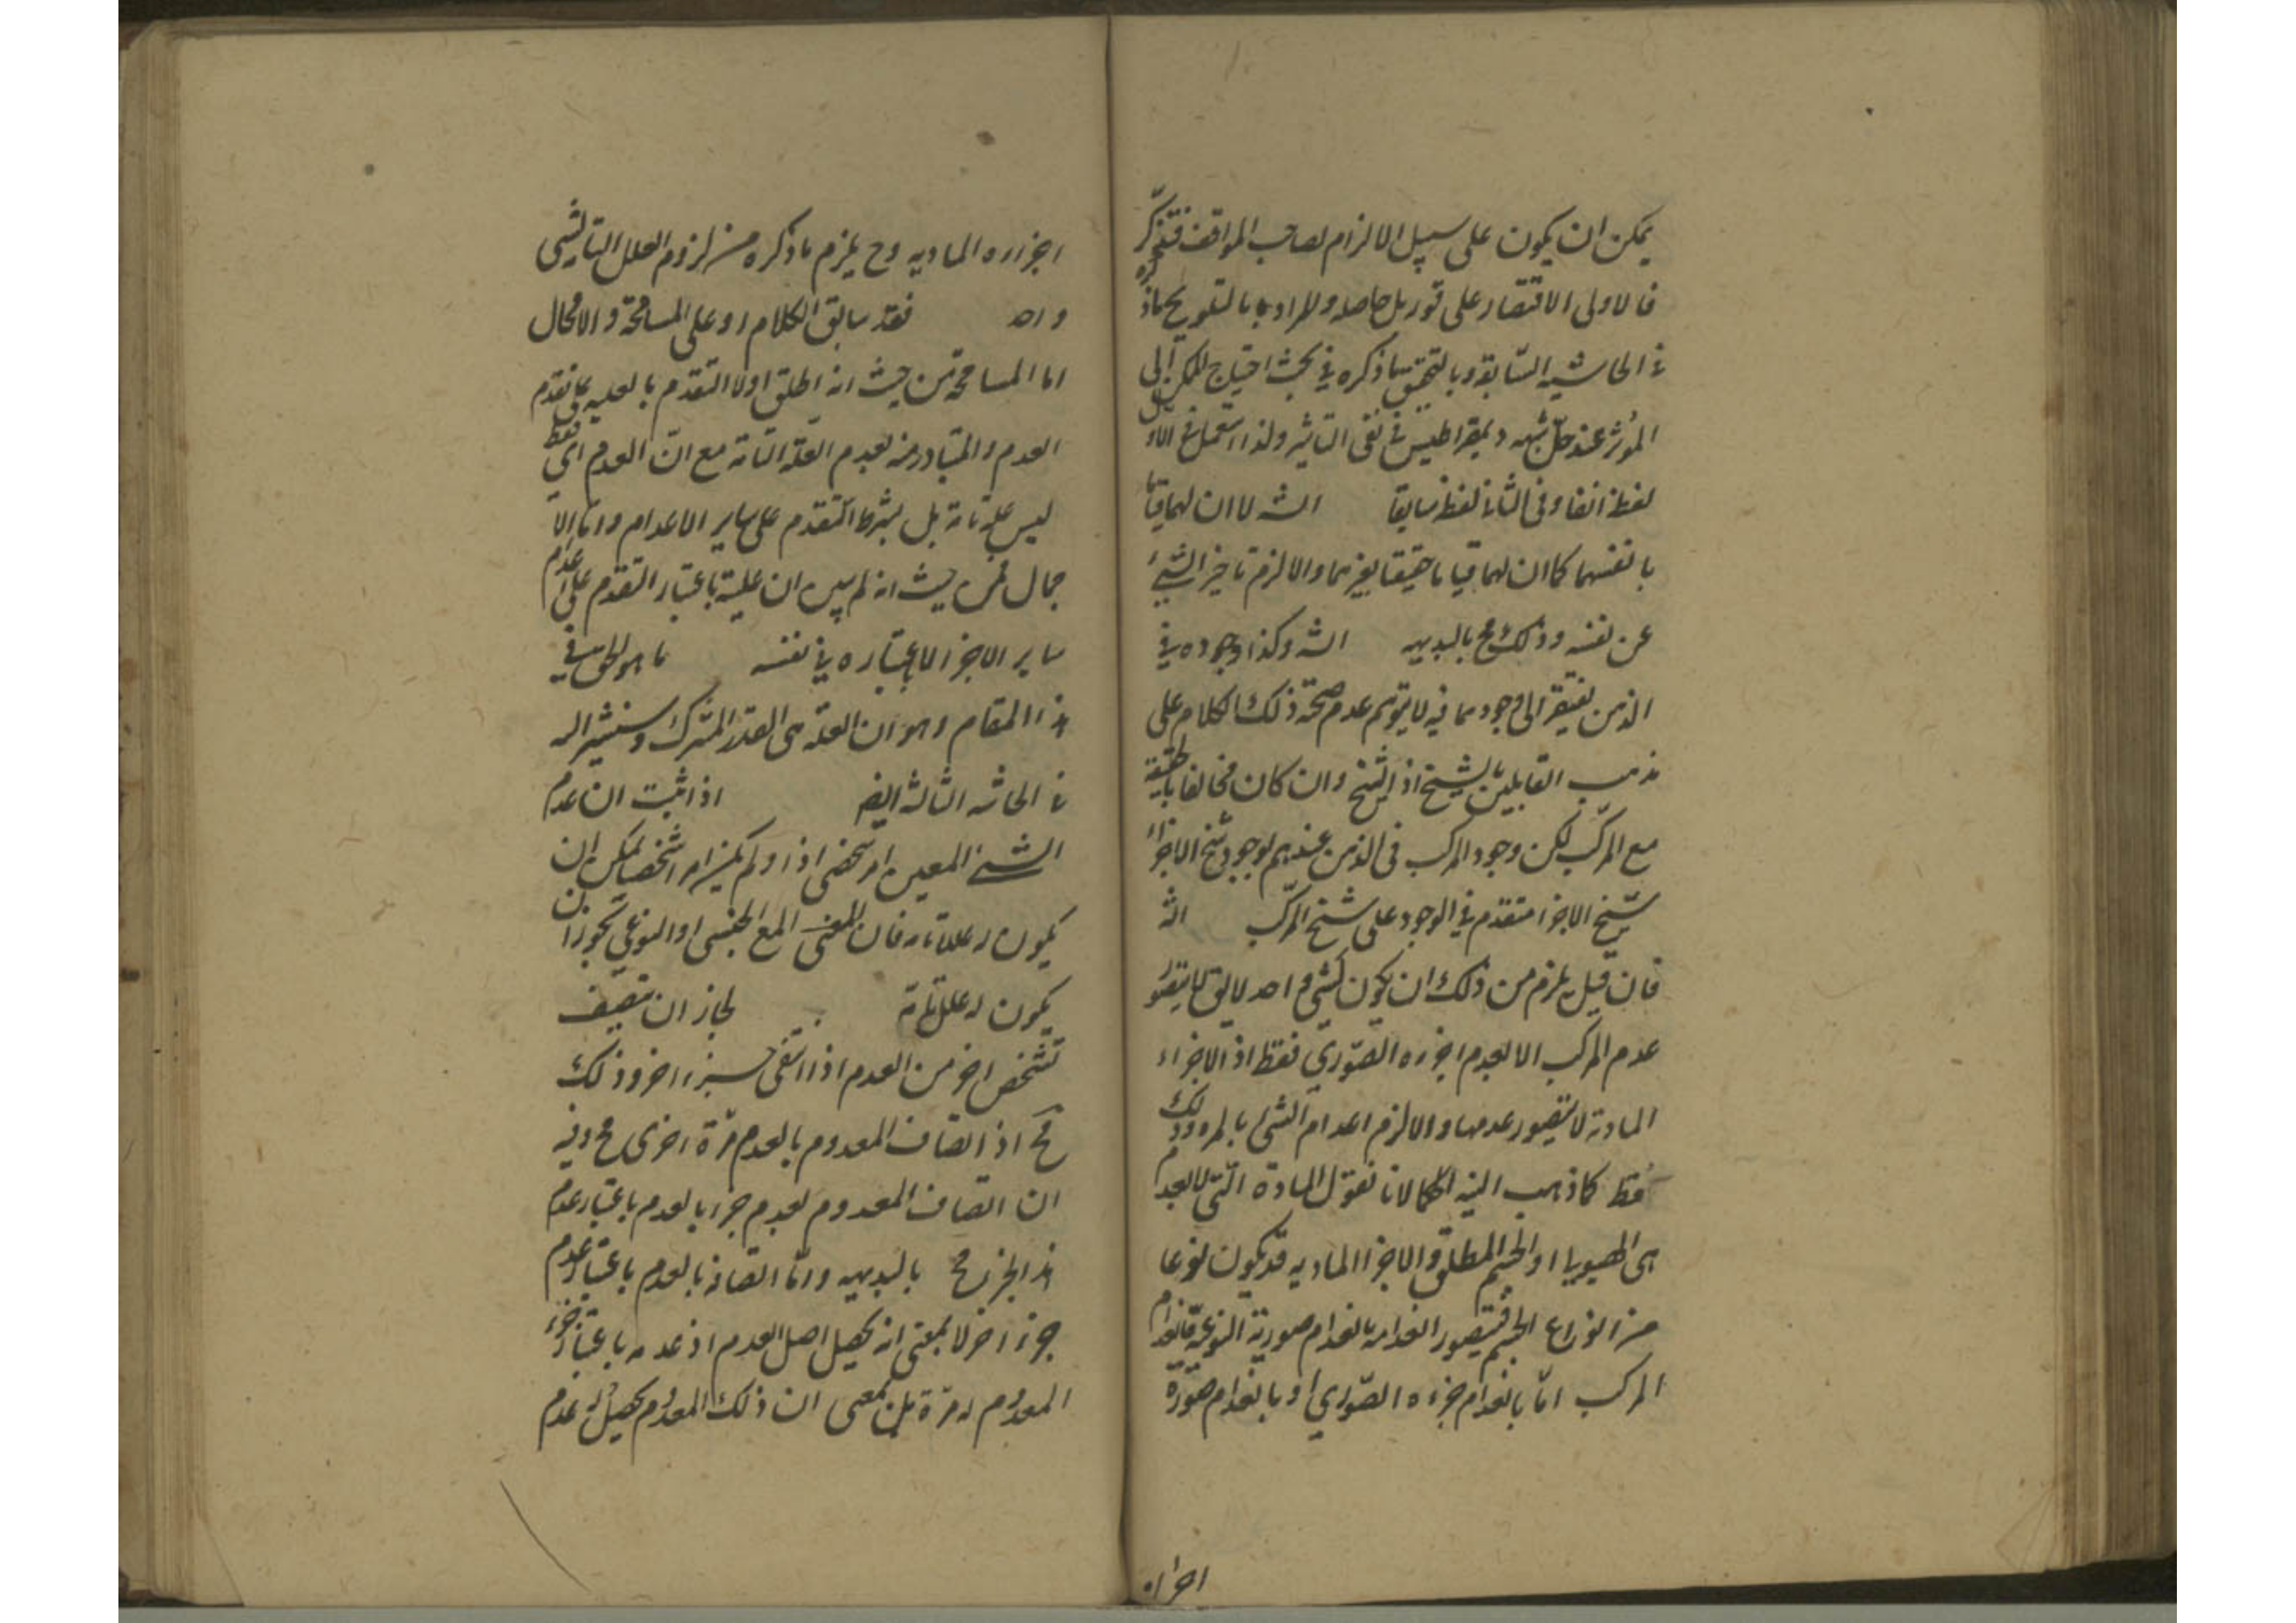 يمكن ان يكون على سبيل الالزام لصاحب المواقف فتذكّر
فالاولى الاقتصار على قوله بل حاصله والمراد بالتلويح ماذكره
في الحاشيه السّابقه وبالتحقيق ماذكره في بحث احتياج الممكن الى
المؤثر عند حلّ شبهه ديمقراطيس في نفى التاثير ولذا استعمل في الاول
لفظ انفا وفى الثانى لفظ سابقا الشه لا ان لهما قيا
بانفسهما كما ان لهما قياما حقيقتا بغيرهما والا لزم تاخير الشئ
عن نفسه وذلك مح بالبديهه الشه وكذا وجوده في
الذهن يفتقر الى وجودهما فيه لا يتوهم عدم صحّة ذلك الكلام على
مذهب القايلين بالشبح اذ الشبح وان كان مخالفا بالحقيقة
مع المركّب لكن وجود المركب فى الذهن عندهم لوجود شبح الاجزاء
شبح الاجزا متقدم في الوجود على شبح المركّب الشه
فان قيل يلزم من ذلك ان يكون لشئ واحد لا يق لا يتصور
عدم المركب الا بعدم اجزاه الصّوري فقط اذ الاجزاء
المادية لا يتصور عدمها والا لزم اعدام الشئ بالمره وذلك
فقط كما ذهب اليه الحكما لانا نقول المادة الّتى لا تعدم
هى الهيولا او الجسم المطلق والاجزا الماديه قد يكون نوعا
من انواع الجسم فيتصور انعدامه بانعدام صورته النوعيّة فانعدام
المركب امّا بانعدام جزءه الصّوري او بانعدام صورة
اجزاه
اجزاءه الماديه وح يلزم ماذكره من لزوم العلل التا لشئ
واحد فقد سابق الكلام او على المسامحة والامحال
اما المسامحة فمن حيث انه اطلق اولا التقدم بالعليه على تقدم
العدم والمتبادر منه لعدم العلّة التامة مع انّ العدم اى فقط
ليس علّة تامة بل بشرط التقدم على ساير الاعدام وامّا الا
جمال فمن حيث انه لم يبين ان علية باعتبار التقدم على عدم
ساير الاجزا لا باعتباره في نفسه ما هو الحق في
هذا المقام وهو ان العله هى القدر المشترك وسنشير اليه
في الحاشيه الثالثه ايضا اذا ثبت ان عدم
الشئ المعين امر شخصى اذا ولم يكن امرا شخصيا يمكن ان
يكون له علل تامه فان المعنى الجنسى او النوعى يجوز ان
يكون له علل تامة لجاز ان يتصف
تشخص اخر من العدم اذا انتفى جزء اخر وذلك
مح اذ اتصاف المعدوم بالعدم مرّة اخرى مح وفيه
ان اتصاف المعدوم لعدم جزء بالعدم باعتبار عدم
هذا الجزء مح بالبديهه وامّا اتصافه بالعدم باعتبار عدم
جزء اخر لا بمعنى انه يحصل اصل العدم اذ عدمه باعتبار جزء
المعدوم له مرّة بل بمعنى ان ذلك المعدوم يحصل له عدم